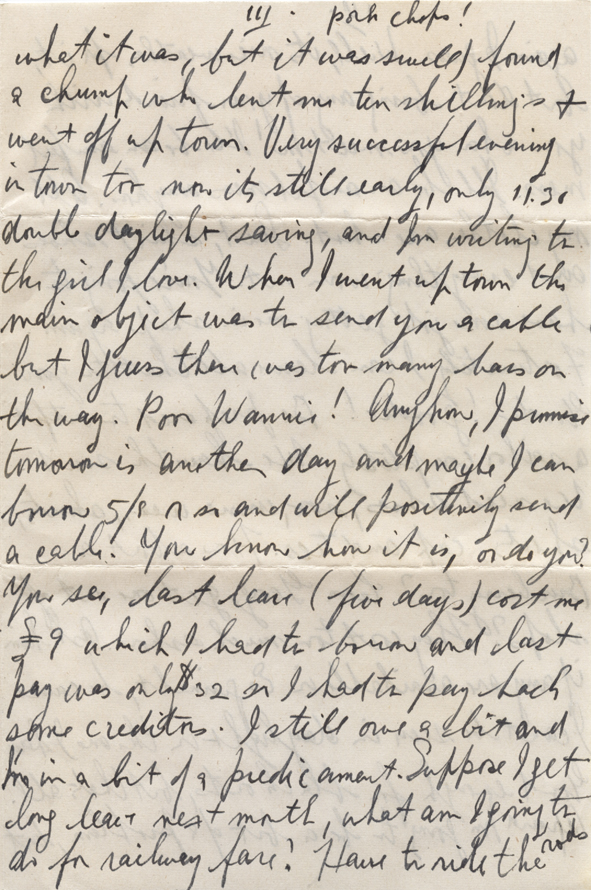 III. pork chops!
what it was, but it was swell) found
a chump who lent me ten shillings &
went off up town. Very successful evening
in town too now its still early, only 11.30
double daylight saving, and I'm writing to
the girl I love. When I went up town the
main object was to send you a cable
but I guess there was too many bars on
the way. Poor Wannie! Anyhow, I promise
tomorrow is another day and maybe I can
borrow 5/- or so and will positively send
a cable. You know how it is, or do you?
You see, last leave (five days) cost me
£9 which I had to borrow and last
pay was only $32 so I had to pay back
some creditors. I still owe a bit and
I'm in a bit of a predicament. Suppose I get
long leave next month, what am I going to
do for railway fare? Have to ride the rods